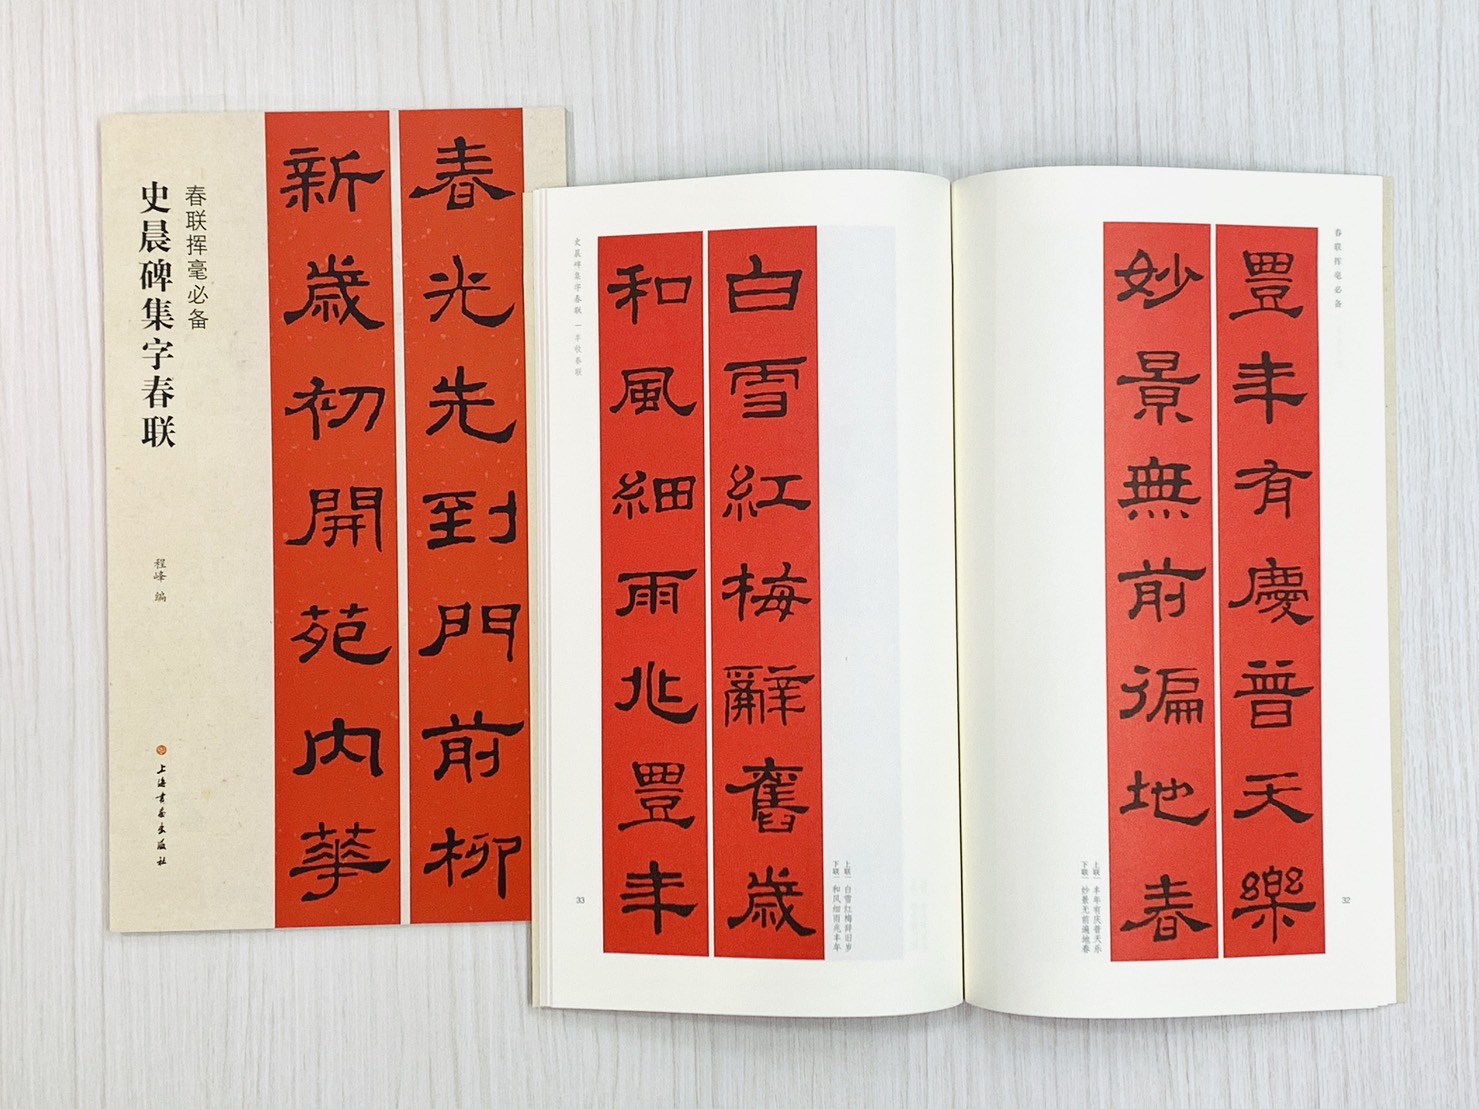 春光先到門前柳
新歲初開苑内華
春联挥毫必备
史晨碑集字春联
程峰 编
上海书画出版社
春联挥毫必备
32
豐年有慶普天樂
妙景無前徧地春
上联｜丰年有庆普天乐
下联｜妙景无前遍地春
上联｜白雪红梅辞旧岁
下联｜和风细雨兆丰年
白雪紅梅辭舊歲
和風細雨兆豐年
史晨碑集字春联｜丰收春联
33